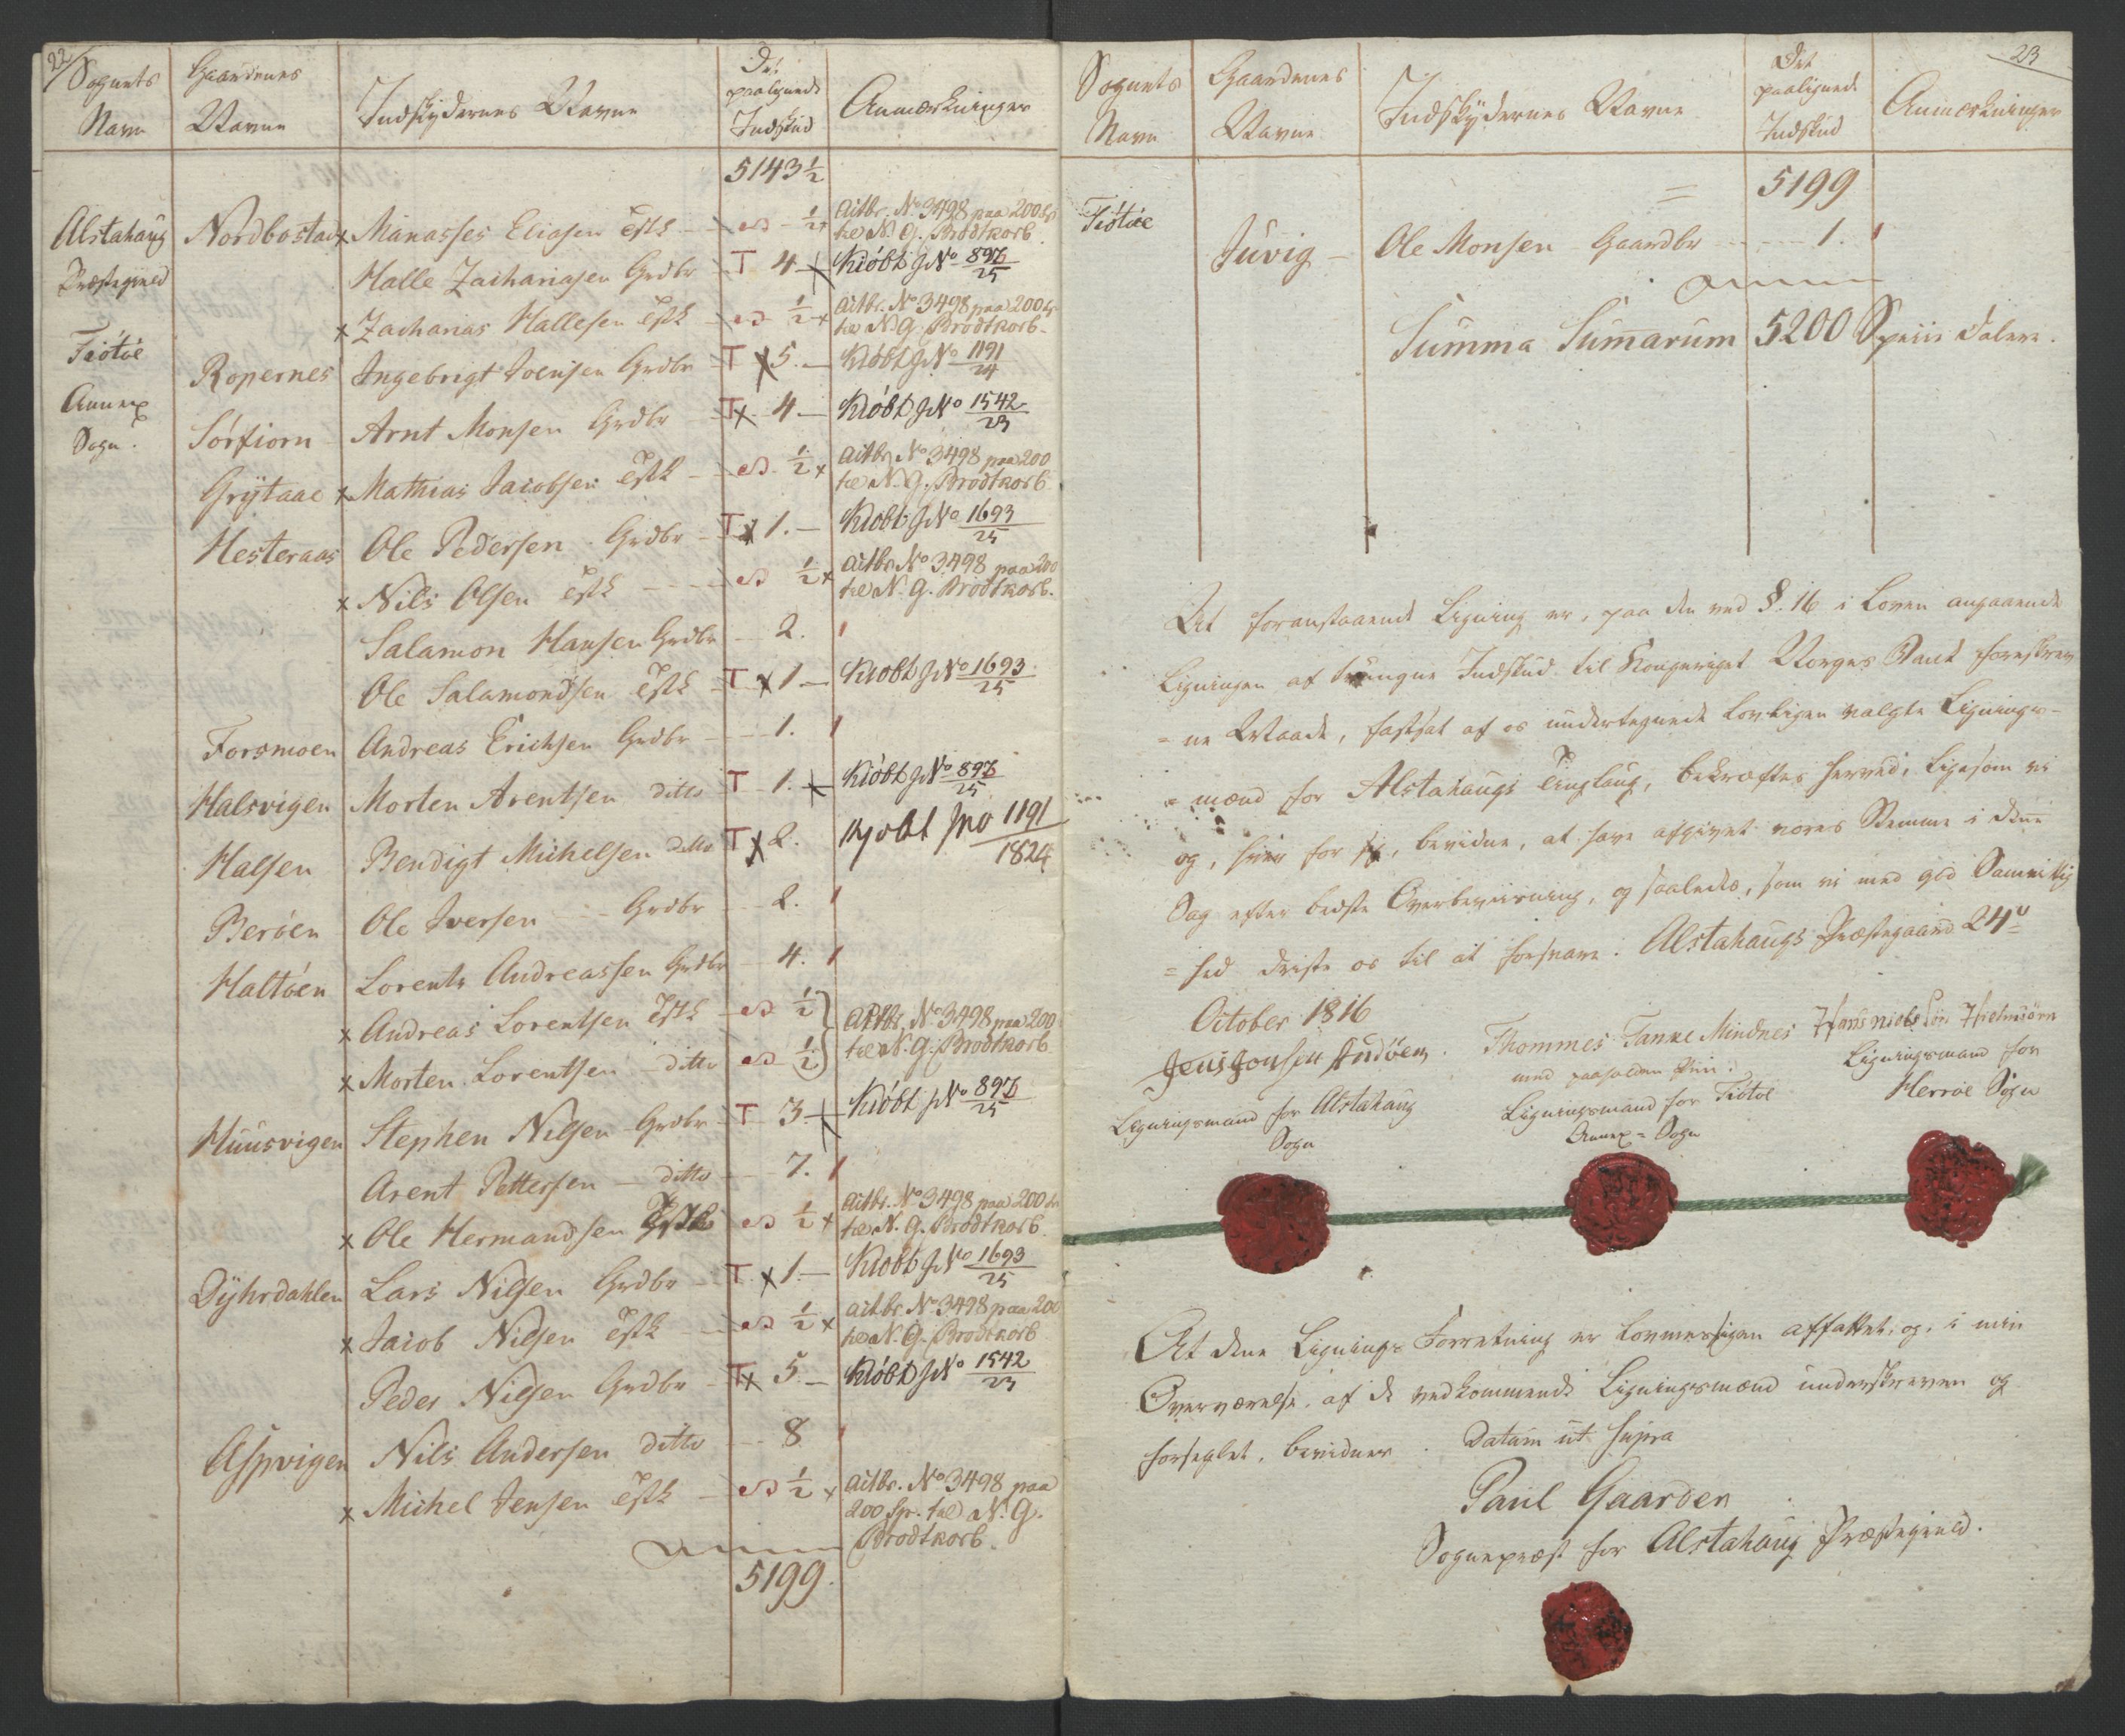 22
Sognets Navn | Gaardenes Navne | Indskydernes Navne | Det paalignede Indskud | Anmærkninger
5143 ½
Alstahaug Præstegield | Nordbostad | x Manasses Eliasen Estk | ½ x | Actbr. No 3498 paa 200 Sp til N. G. Brodtkorb.
Halle Zachariasen Grdbr | T 4 | Kiøbt J No 897/25
x Zacharias Hallesen Estk | ½ x | Actbr. No 3498 paa 200 Sp til N. G. Brodtkorb.
Tiøtøe Annex Sogn. | Ropernes | Ingebrigt Joensen Grdbr | T x 5. | Kiøbt J No 1191/24
Sørfiorn | Arnt Monsen Grdbr | T x 4 | Kiøbt J No 1542/23
Grytaae | x Mathias Jacobsen Estk | ½ x | Actbr. No 3498 paa 200 til N. G. Brodtkorb
Hesteraas | Ole Pedersen Grdbr | T x 1. | Kiøbt J No 1693/25
x Nils Olsen Estk | ½ x | Actbr No 3498 paa 200 til N. G. Brodtkorb.
Salamon Hansen Grdbr | 2.
Ole Salamondsen Estk | T x 1 | Kiøbt J No 1693/25
Forsmoen | Andreas Erichsen Grdbr | 1.
Halsvigen | Morten Arentsen ditto | T 1. | Kiøbt J No 897/25
Halsen | Bendigt Michelsen ditto | T x 2. | Kjøbt J No 1191/1824
Berøen | Ole Iversen Grdbr | 2.
Haltøen | Lorents Andreassen Grdbr | 4.
x Andreas Lorentsen Estk | ½ | Actbr. No 3498 paa 200
x Morten Lorentsen ditto | ½ | til N. G. Brodtkorb
Huusvigen | Stephen Nilsen Grdbr | T 3 | Kiøbt J No 897/25
Arent Pettersen ditto | 7.
x Ole Hermandsen Estk | ½ x | Actbr. No 3498 paa 200 Sp til N. G. Brodtkorb.
Dyhrdahlen | Lars Nilsen Grdbr | T x 1. | Kiøbt J No 1693/25
x Jacob Nilsen Estk | ½ x | Actbr. No 3498 paa 200 til N. G. Brodtkorb
Peder Nilsen Grdbr | T x 5. | Kiøbt J No 1542/23
Aspvigen | Nils Andersen ditto | 8
x Michel Jensen Estk | ½ x | Actbr. No 3498 paa 200 Sp. til N. G. Brodtkorb.
5199.
23
Sognets Navn | Gaardenes Navne | Indskydernes Navne | Det paalignede Indskud | Anmærkninger
= 5199
Tiøtøe | Juvig | Ole Monsen Gaardbr | 1.
Summa Sumarum 5200 Specie Daler.
At foranstaaende Ligning er, paa den ved §. 16 i Loven angaaende
Ligningen af tvungne Indskud til Kongeriget Norges Bank foreskrev
= ne Maade, fastsat af os undertegnede lovligen valgte Lignings-
= mænd for Alstahaugs Tinglaug, bekræftes herved, ligesom vi
og, hver for sig, bevidne, at have afgivet vores Stemme i denne
Sag efter bedste Overbeviisning, og saaledes, som vi med god Samvittig
= hed driste os til at forsvare. Alstahaugs Præstegaard 24de
October 1816
Jens Jonsen | Thommes Tanke Mindnes | Hans
med paaholden Pen: | Ligningsmand for
Ligningsmand for Alstahaug | Ligningsmand for Tiøtøe | Herrøe Sogn
Sogn | Annex = Sogn
At denne Lignings Forretning er lovmessigen affattet, og, i min
Overværelse, af de vedkommende Ligningsmænd underskreven og
forseglet, bevidner. Datum ut supra
Paul Gaarder
Sognepræst for Alstahaug Præstegield.